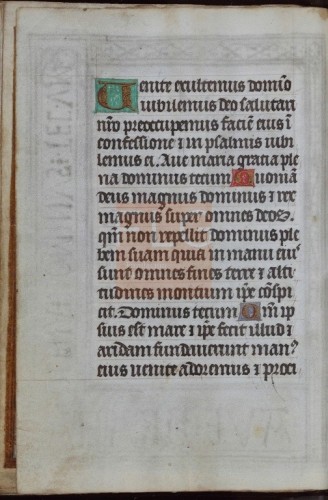 Venite exultemus domĩo
iubilemus deo salutari
nr̃o preoccupemus faciẽ eius ĩ
confessione ⁊ in psalmis iubi
lemus ei. Aue maria gratia ple
na dominus tecum Quoniã
deus magnus dominus ⁊ rex
magnus super omnes deoꝫ.
qm̃ non repellit dominus ple
bem suam quia in manu eiꝰ
sunt omnes fines terre ⁊ alti
tudines montium ip̃e cõspi
cit. Dominus tecum Qm̃ ip
sius est mare ⁊ ip̃e fecit illud ⁊
aridam fundauerunt manꝰ
eius uenite adoremus ⁊ proci